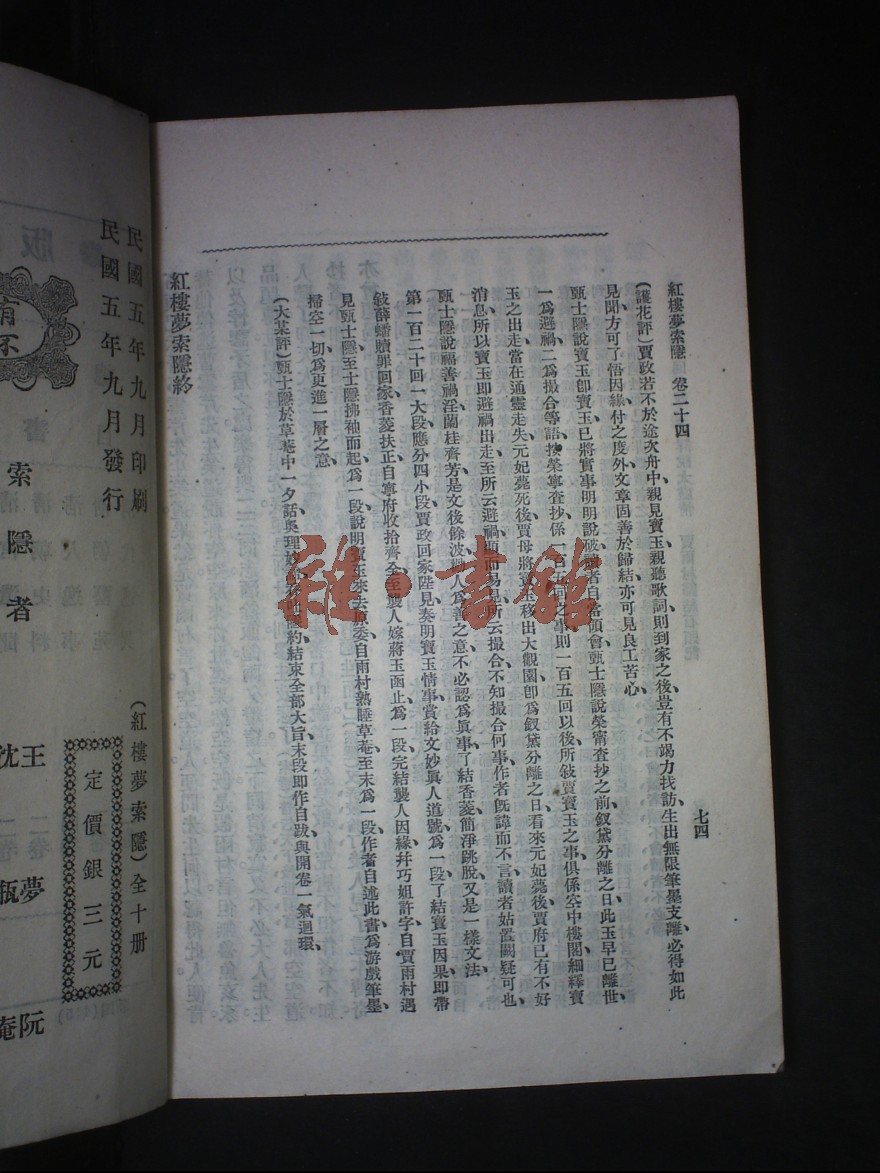 紅樓夢索隱　卷二十四　七四
(護花評)賈政若不於途次舟中、親見寶玉、親聽歌詞、則到家之後、豈有不竭力找訪、生出無限筆墨支離、必得如此
見聞、方可了悟因緣、付之度外、文章固善於歸結、亦可見良工苦心、
甄士隱說寶玉卽寶玉、已將實事明明說破、讀者自當領會、甄士隱說榮甯查抄之前、釵黛分離之日、此玉早已離世、
一爲避禍、二爲撮合等語、按榮寧查抄、係一百五回之事、則一百五回以後、所敍賈寶玉之事、俱係空中樓閣、細繹寶
玉之出走、當在通靈走失、元妃薨死後、賈母將寶玉移出大觀園、卽爲釵黛分離之日、看來元妃薨後、賈府已有不好
消息、所以寶玉卽避禍出走、至所云避禍、顯而易見、所云撮合、不知撮合何事、作者旣諱而不言、讀者姑置闕疑可也、
甄士隱說福善禍淫、蘭桂齊芳、是文後餘波、勸人爲善之意、不必認爲眞事、了結香菱、簡淨跳脫、又是一樣文法、
第一百二十回一大段、應分四小段、賈政回家陛見、奏明寶玉情事、賞給文妙眞人道號、爲一段、了結寶玉因果、卽帶
敍薛蟠贖罪回家、香菱扶正、自寧府收拾齊全、至襲人嫁蔣玉函止、爲一段、完結襲人因緣、幷巧姐許字、自賈雨村遇
見甄士隱、至士隱拂袖而起、爲一段、說明寶玉來去原委、自雨村熟睡草菴至末、爲一段、作者自述此書爲游戲筆墨、
掃空一切、爲更進一層之意、
(大某評)甄士隱於草菴中一夕話、
約結束全部大旨、末段卽作自跋、與開卷一氣迴環、
紅樓夢索隱終
民國五年九月印刷
民國五年九月發行
(紅樓夢索隱)全十册
定價銀三元
版
索隱者
王夢
沈瓶
阮
庵
雜·書館